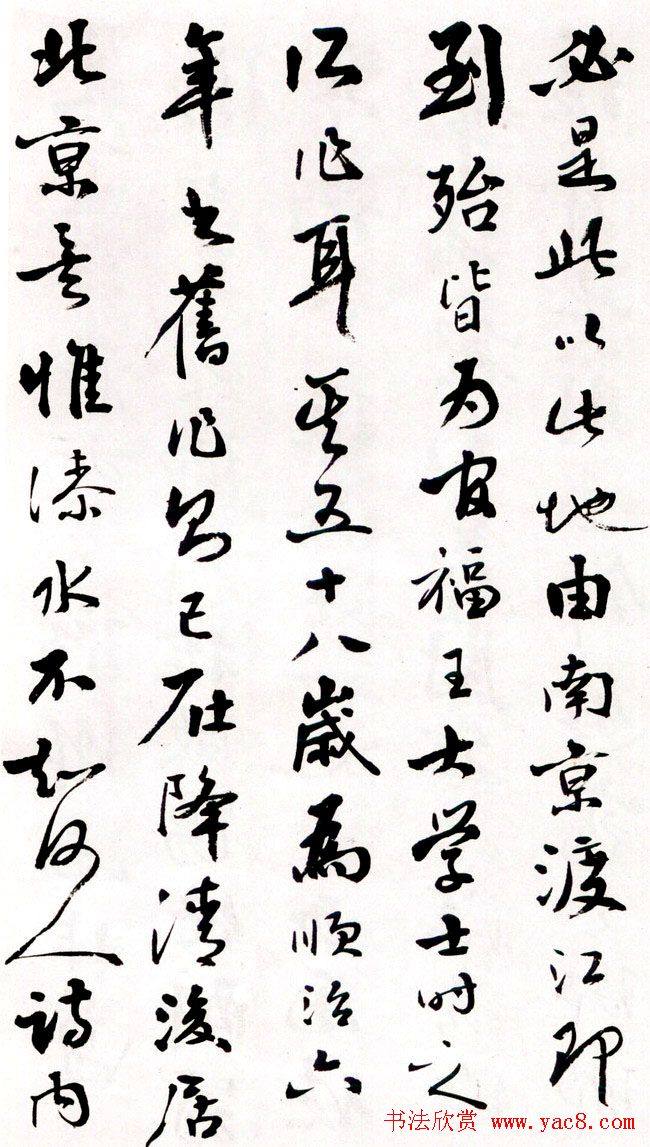 必是此以此地由南京渡江即
到殆皆为官福王大学士时之
所作耳其五十八歲為順治六
年舊作則已在降清後居
北京矣惟水不知何人詩内
书法欣赏 www.yac8.com